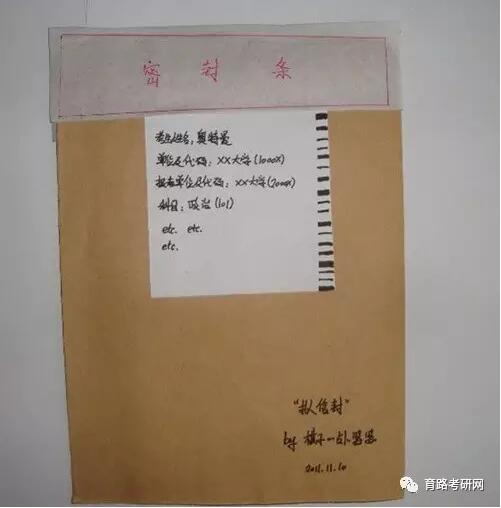 密封条
考生姓名：奥特曼
单位及代码：XX大学(1000X)
报考单位及代码：XX大学(2000X)
科目：政治(101)
etc. etc.
etc.
"拟信封"
by
2011.11.10
育路考研网